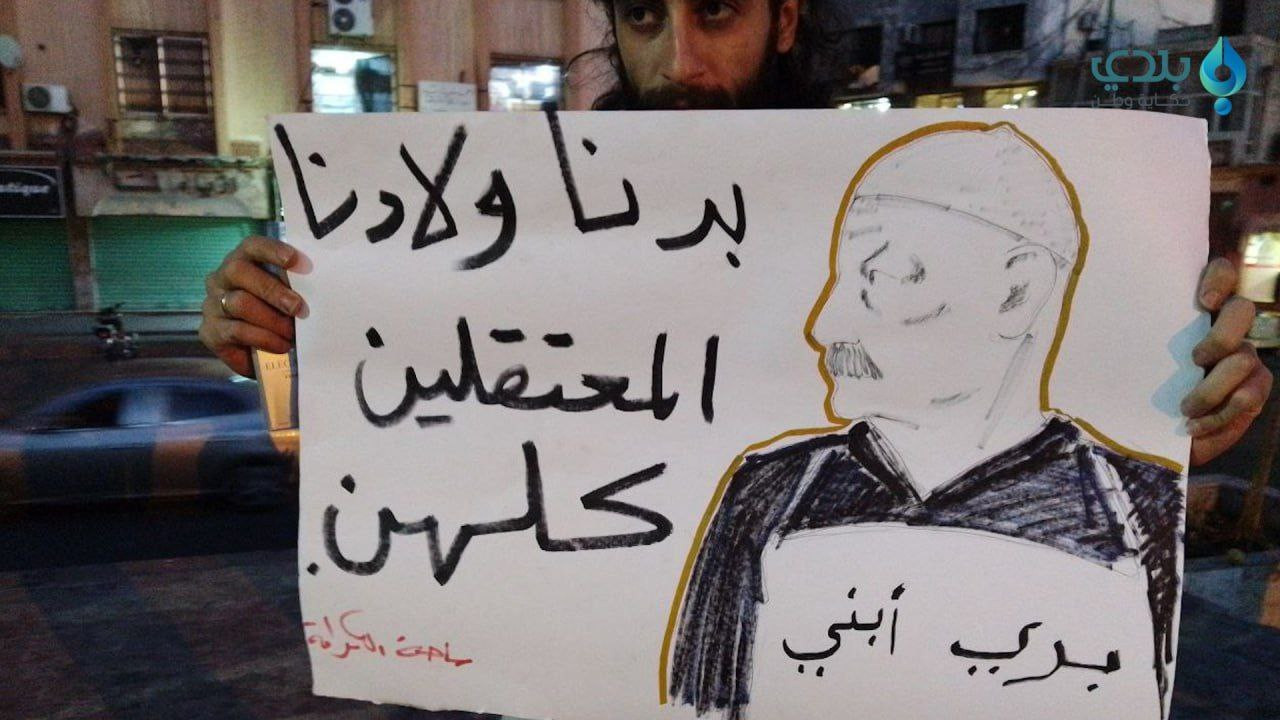 بلدي
حكاية وطن
بدنا ولادنا
المعتقلين
كلهن.
ساحة الكرامة
بدي أبني